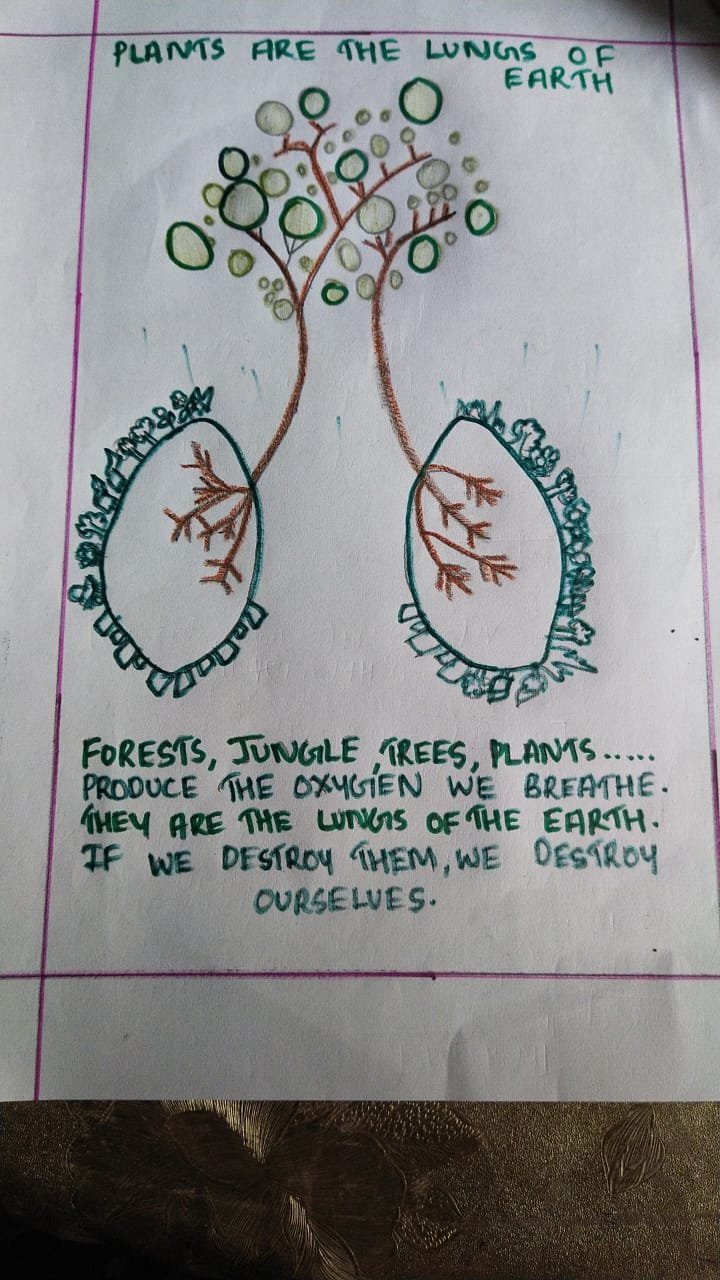 PLANTS ARE THE LUNGS OF
EARTH
FORESTS, JUNGLE, TREES, PLANTS.....
PRODUCE THE OXYGEN WE BREATHE.
THEY ARE THE LUNGS OF THE EARTH.
IF WE DESTROY THEM, WE DESTROY
OURSELVES.